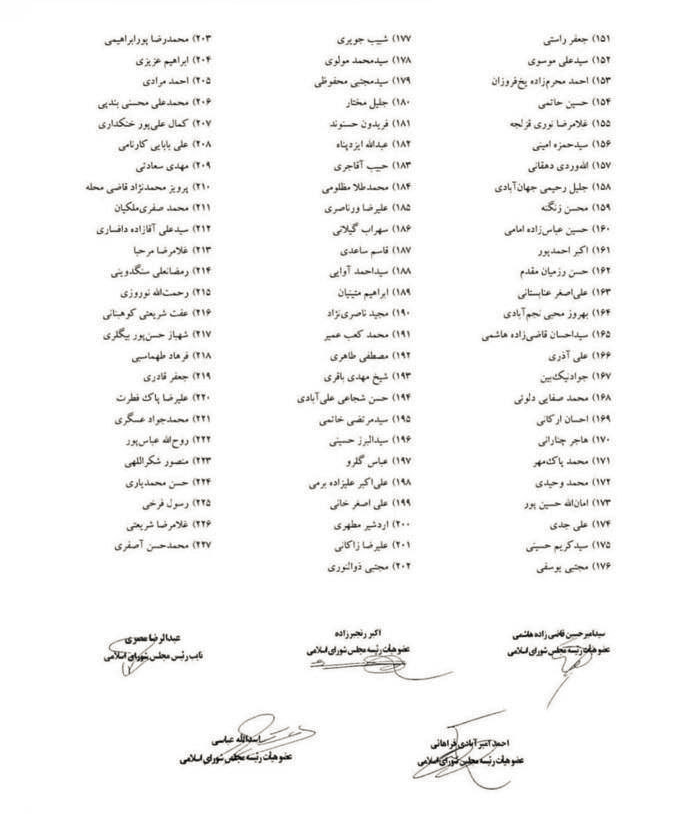 ۱۵۱) جعفر راستی
۱۵۲) سیدعلی موسوی
۱۵۳) احمد محرم‌زاده یخ‌فروزان
۱۵۴) حسین حاتمی
۱۵۵) غلامرضا نوری قزلجه
۱۵۶) سیدحمزه امینی
۱۵۷) الله‌وردی دهقانی
۱۵۸) جلیل رحیمی جهان‌آبادی
۱۵۹) محسن زنگنه
۱۶۰) حسین عباس‌زاده امامی
۱۶۱) اکبر احمدپور
۱۶۲) حسن رزمیان مقدم
۱۶۳) علی‌اصغر عنابستانی
۱۶۴) بهروز محبی نجم‌آبادی
۱۶۵) سیداحسان قاضی‌زاده هاشمی
۱۶۶) علی آذری
۱۶۷) جوادنیک‌بین
۱۶۸) محمد صفایی دلوئی
۱۶۹) احسان ارکانی
۱۷۰) هاجر چنارانی
۱۷۱) محمد پاک‌مهر
۱۷۲) محمد وحیدی
۱۷۳) امان‌الله حسین پور
۱۷۴) علی جدی
۱۷۵) سیدکریم حسینی
۱۷۶) مجتبی یوسفی
۱۷۷) شبیب جویری
۱۷۸) سیدمحمد مولوی
۱۷۹) سیدمجتبی محفوظی
۱۸۰) جلیل مختار
۱۸۱) فریدون حسنوند
۱۸۲) عبدالله ایزدپناه
۱۸۳) حبیب آقاجری
۱۸۴) محمدطلا مظلومی
۱۸۵) علیرضا ورناصری
۱۸۶) سهراب گیلانی
۱۸۷) قاسم ساعدی
۱۸۸) سیداحمد آوایی
۱۸۹) ابراهیم متینیان
۱۹۰) مجید ناصری‌نژاد
۱۹۱) محمد کعب عمیر
۱۹۲) مصطفی طاهری
۱۹۳) شیخ مهدی باقری
۱۹۴) حسن شجاعی علی‌آبادی
۱۹۵) سیدمرتضی خاتمی
۱۹۶) سیدالبرز حسینی
۱۹۷) عباس گلرو
۱۹۸) علی‌اکبر علیزاده برمی
۱۹۹) علی اصغر خانی
۲۰۰) اردشیر مطهری
۲۰۱) علیرضا زاکانی
۲۰۲) مجتبی ذوالنوری
۲۰۳) محمدرضا پورابراهیمی
۲۰۴) ابراهیم عزیزی
۲۰۵) احمد مرادی
۲۰۶) محمدعلی محسنی بندپی
۲۰۷) کمال علی‌پور خنکداری
۲۰۸) علی بابایی کارنامی
۲۰۹) مهدی سعادتی
۲۱۰) پرویز محمدنژاد قاضی محله
۲۱۱) محمد صفری‌ملکیان
۲۱۲) سیدعلی آقازاده دافساری
۲۱۳) غلامرضا مرحبا
۲۱۴) رمضانعلی سنگدوینی
۲۱۵) رحمت‌الله نوروزی
۲۱۶) عفت شریعتی کوهبنانی
۲۱۷) شهباز حسن‌پور بیگلری
۲۱۸) فرهاد طهماسبی
۲۱۹) جعفر قادری
۲۲۰) علیرضا پاک فطرت
۲۲۱) محمدجواد عسگری
۲۲۲) روح‌الله عباس‌پور
۲۲۳) منصور شکراللهی
۲۲۴) حسن محمدیاری
۲۲۵) رسول فرخی
۲۲۶) غلامرضا شریعتی
۲۲۷) محمدحسن آصفری
سیدامیرحسین قاضی زاده هاشمی
عضو هیأت رئیسه مجلس شورای اسلامی
اکبر رنجبرزاده
عضو هیأت رئیسه مجلس شورای اسلامی
عبدالرضا مصری
نایب رئیس مجلس شورای اسلامی
احمد امیرآبادی فراهانی
عضو هیأت رئیسه مجلس شورای اسلامی
اسدالله عباسی
عضو هیأت رئیسه مجلس شورای اسلامی